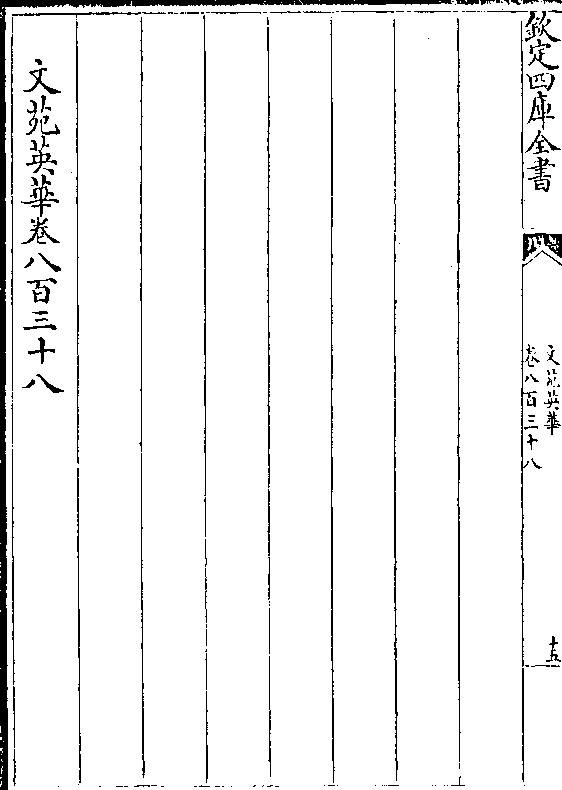 欽定四庫全書
文苑英華
卷八百三十八
十五
文苑英華卷八百三十八